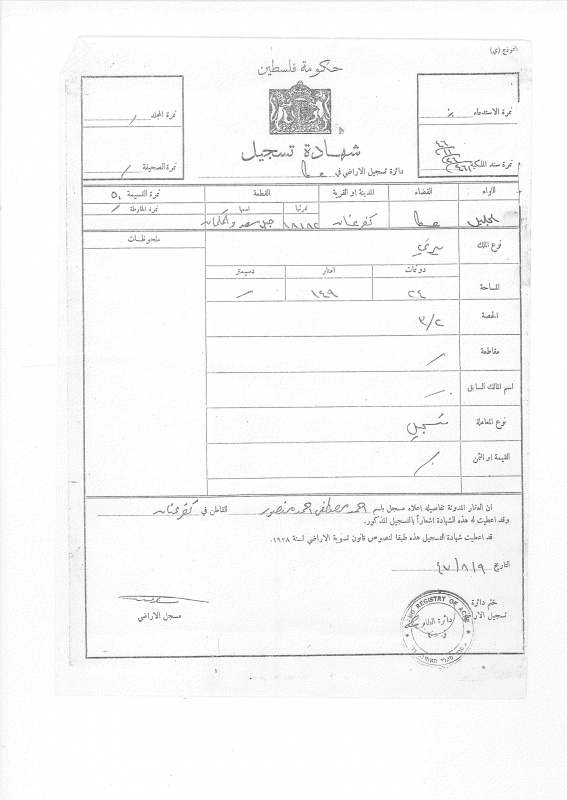 نموذج (ي)
حكومة فلسطين
نمرة الاستدعاء
نمرة سند الملكية
نمرة المجلد /
نمرة الصحيفة /
شهادة تسجيل
دائرة تسجيل الاراضي في عكا
اللواء القضاء المدينة او القرية القطعة نمرة القسيمة ٥٠
نمرتها اسمها نمرة الخارطة /
الجليل عكا كفرعنان ١٨١٨٢ جبل سعد
نوع الملك ميري ملحوظات
دونمات امتار دسيمتر
المساحة ٢٤ ١٤٩ —
الحصة ٣/٢
مقاطعة /
اسم المالك السابق —
نوع المعاملة تسجيل
القيمة او الثمن /
ان العقار المدونة تفاصيله اعلاه مسجل باسم احمد مصطفى احمد منصور القاطن في كفرعنان
وقد اعطيت له هذه الشهادة اشعاراً بالتسجيل المذكور.
قد اعطيت شهادة التسجيل هذه طبقا لنصوص قانون تسوية الاراضي لسنة ١٩٢٨
التاريخ ٤٧/٨/٩
ختم دائرة
تسجيل الار
مسجل الاراضي
LAND REGISTRY OF ACRE